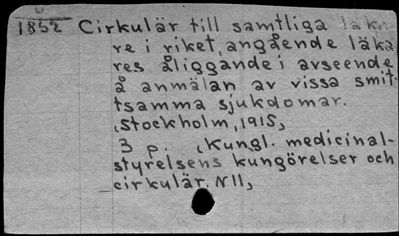 1852 Cirkulär till samtliga läka-
re i riket, angående läka-
res åliggande i avseende
å anmälan av vissa smit-
tsamma sjukdomar.
(Stockholm, 1915)
3 p. (Kungl. medicinal-
styrelsens kungörelser och
cirkulär. N 11)